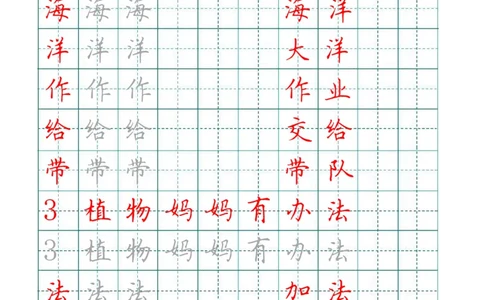 海 海 海 海 洋
洋 洋 洋 大 洋
作 作 作 作 业
给 给 给 交 给
带 带 带 带 队
3 植 物 妈 妈 有 办 法
3 植 物 妈 妈 有 办 法
法 法 法 加 法